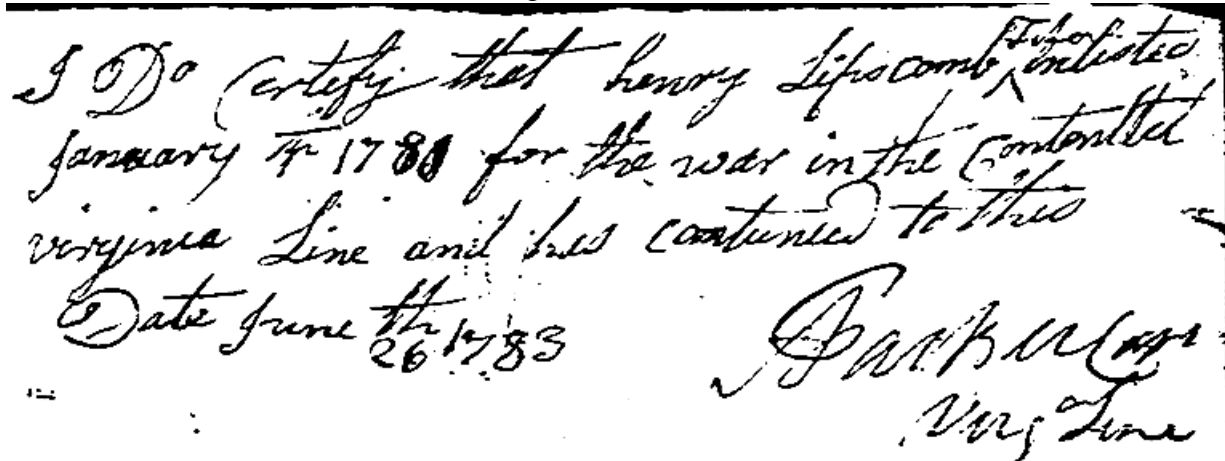 I Do Certify that henry Lipscomb Fifer enlisted
January 1781 for the war in the Contentel
virginia Line and hes contuned to this
Date June 26th 1783
Parker Capt
Virg a Line